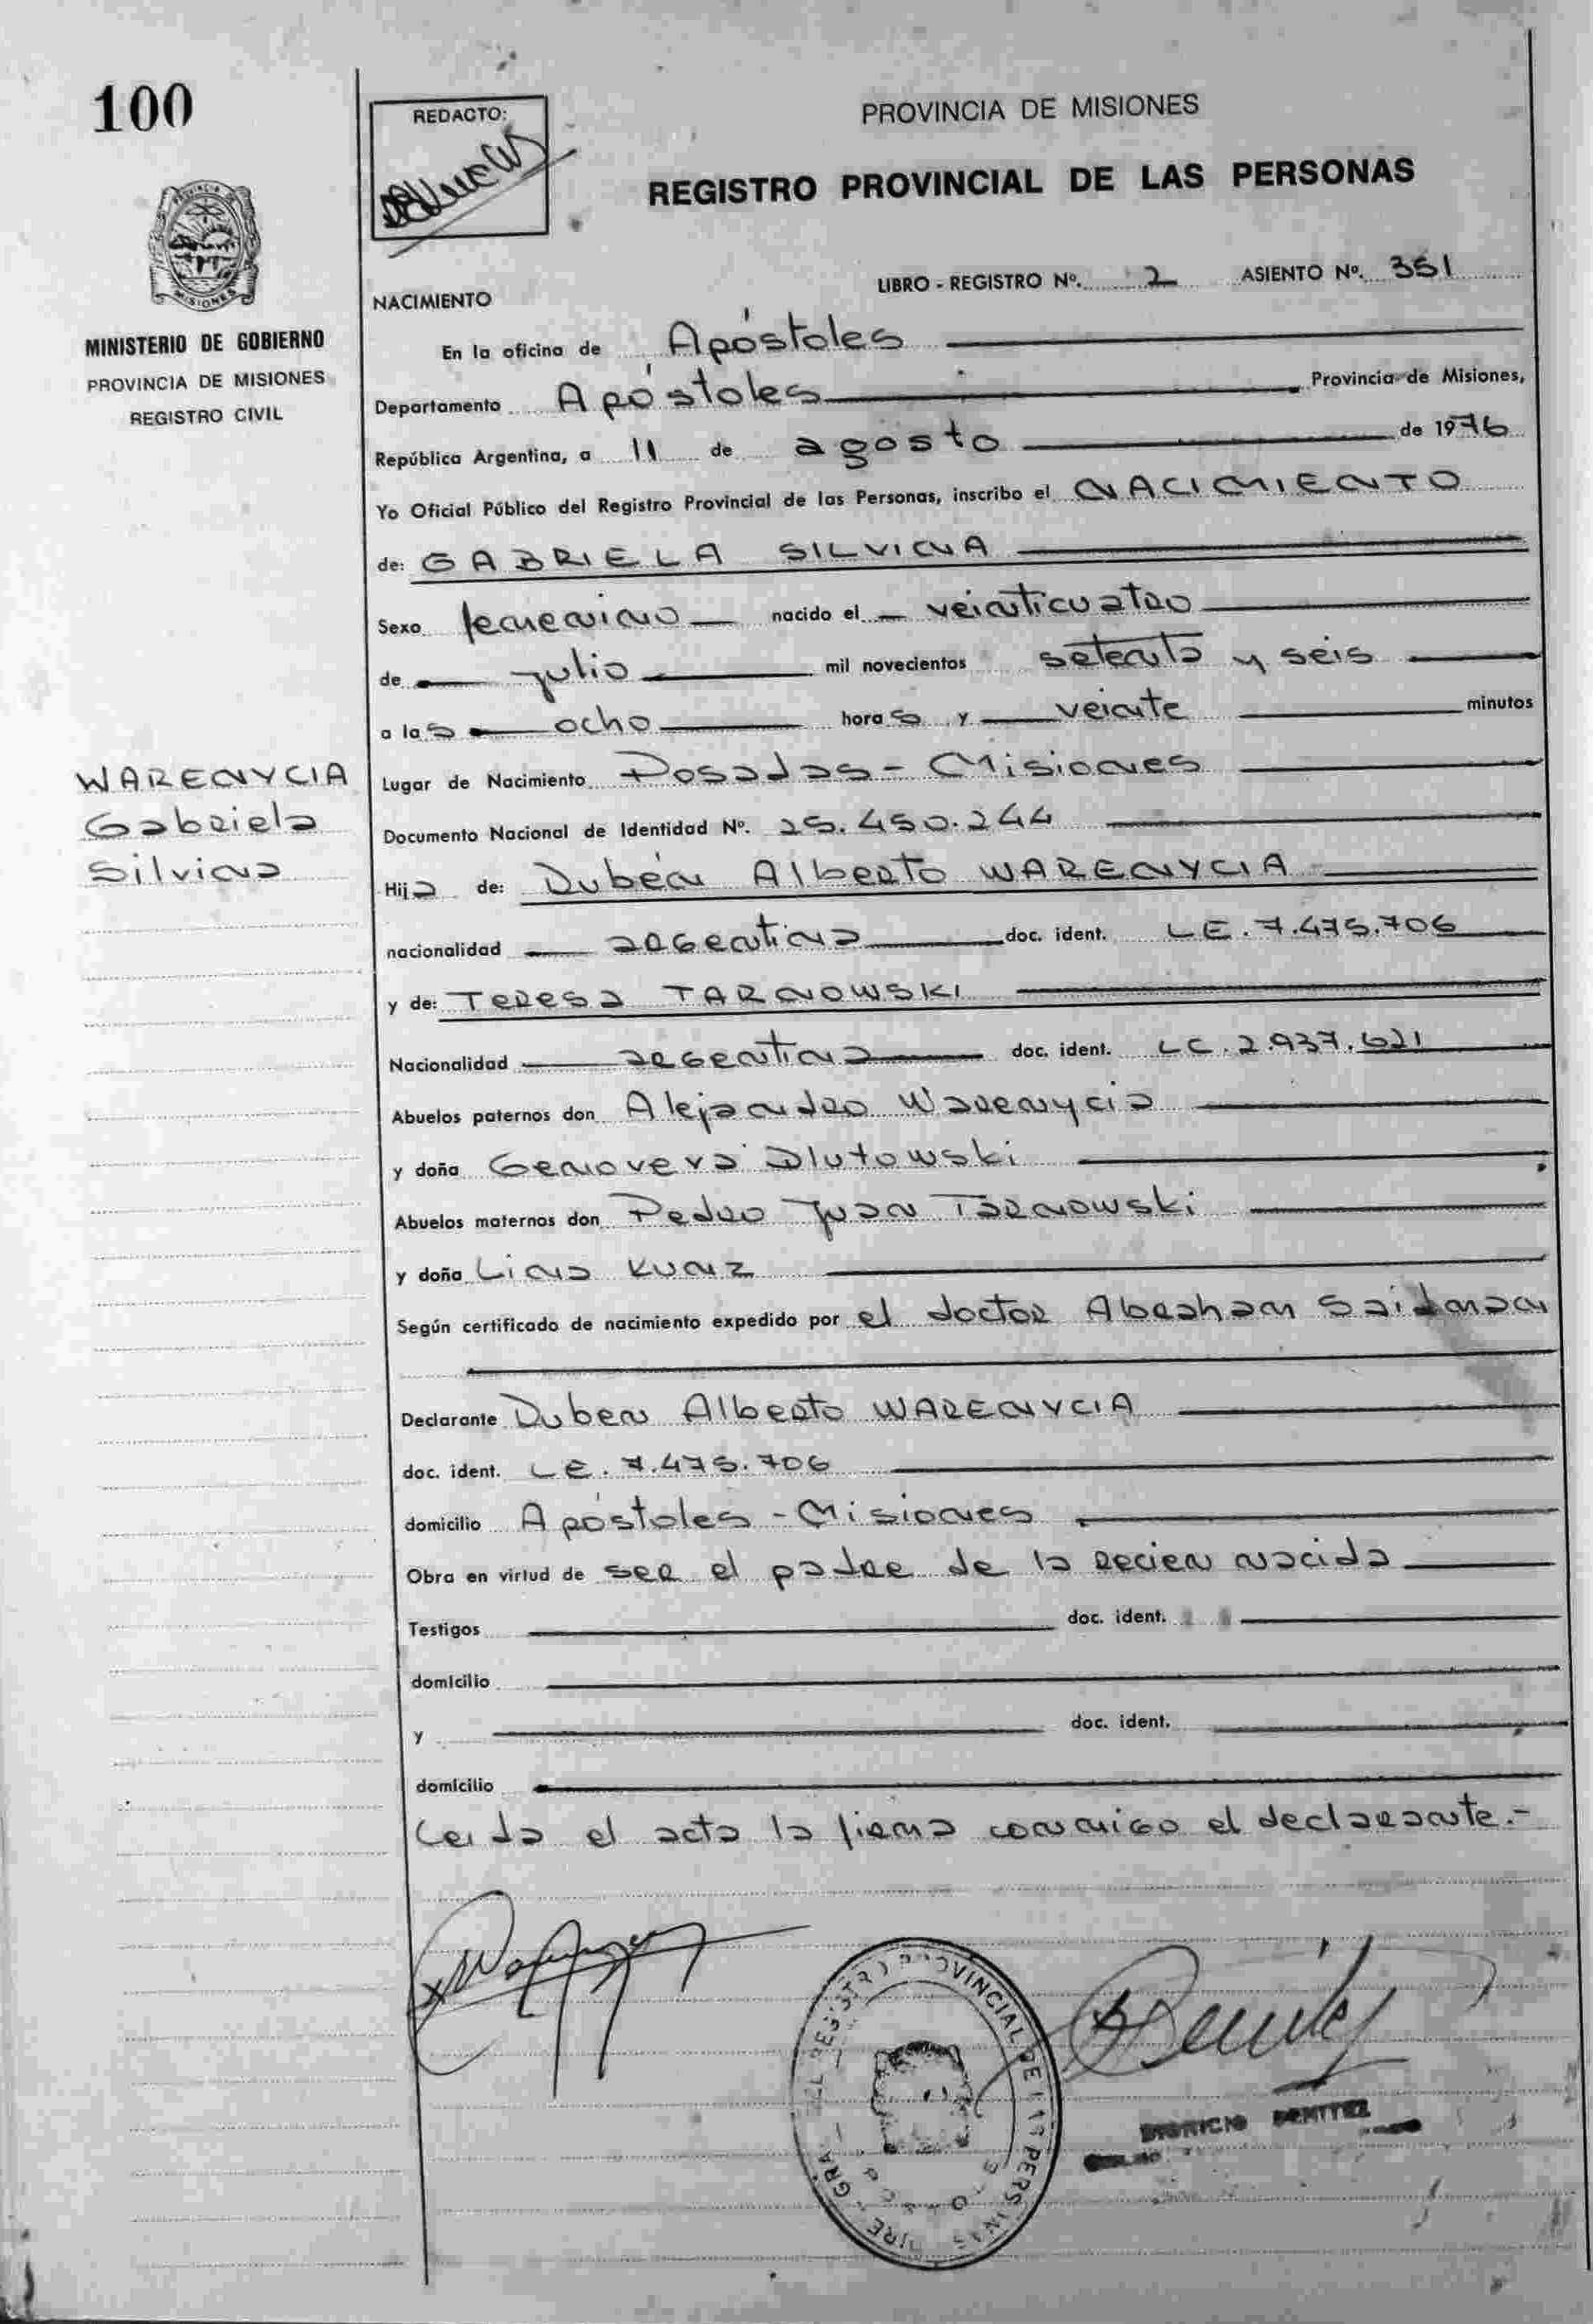 100
REDACTO:
PROVINCIA DE MISIONES
REGISTRO PROVINCIAL DE LAS PERSONAS
MISIONES
MINISTERIO DE GOBIERNO
PROVINCIA DE MISIONES
REGISTRO CIVIL
LIBRO - REGISTRO Nº. 2 ASIENTO Nº. 351
NACIMIENTO
En la oficina de Apóstoles
Departamento Apóstoles Provincia de Misiones,
República Argentina, a 11 de agosto de 1976
Yo Oficial Público del Registro Provincial de las Personas, inscribo el NACIMIENTO
de: GABRIELA SILVINA
Sexo femenino nacido el veinticuatro
de julio mil novecientos setenta y seis
a las ocho horas y veinte minutos
WARENYCIA
Gabriela
Silvina
Lugar de Nacimiento Posadas - Misiones
Documento Nacional de Identidad Nº. 25.450.244
Hija de: Rubén Alberto WARENYCIA
nacionalidad argentina doc. ident. LE. 7.475.706
y de: Teresa TARNOWSKI
Nacionalidad argentina doc. ident. LC. 2.937.621
Abuelos paternos don Alejandro Warenycia
y doña Genoveva Dlutowski
Abuelos maternos don Pedro Juan Tarnowski
y doña Lina Kunz
Según certificado de nacimiento expedido por el doctor Abraham Saidman
Declarante Ruben Alberto WARENYCIA
doc. ident. LE. 7.475.706
domicilio Apóstoles - Misiones
Obra en virtud de ser el padre de la recien nacida
Testigos doc. ident.
domicilio
y doc. ident.
domicilio
Leida el acta la firma conmigo el declarante.-
REGISTRO PROVINCIAL DE LAS PERSONAS
BENITEZ